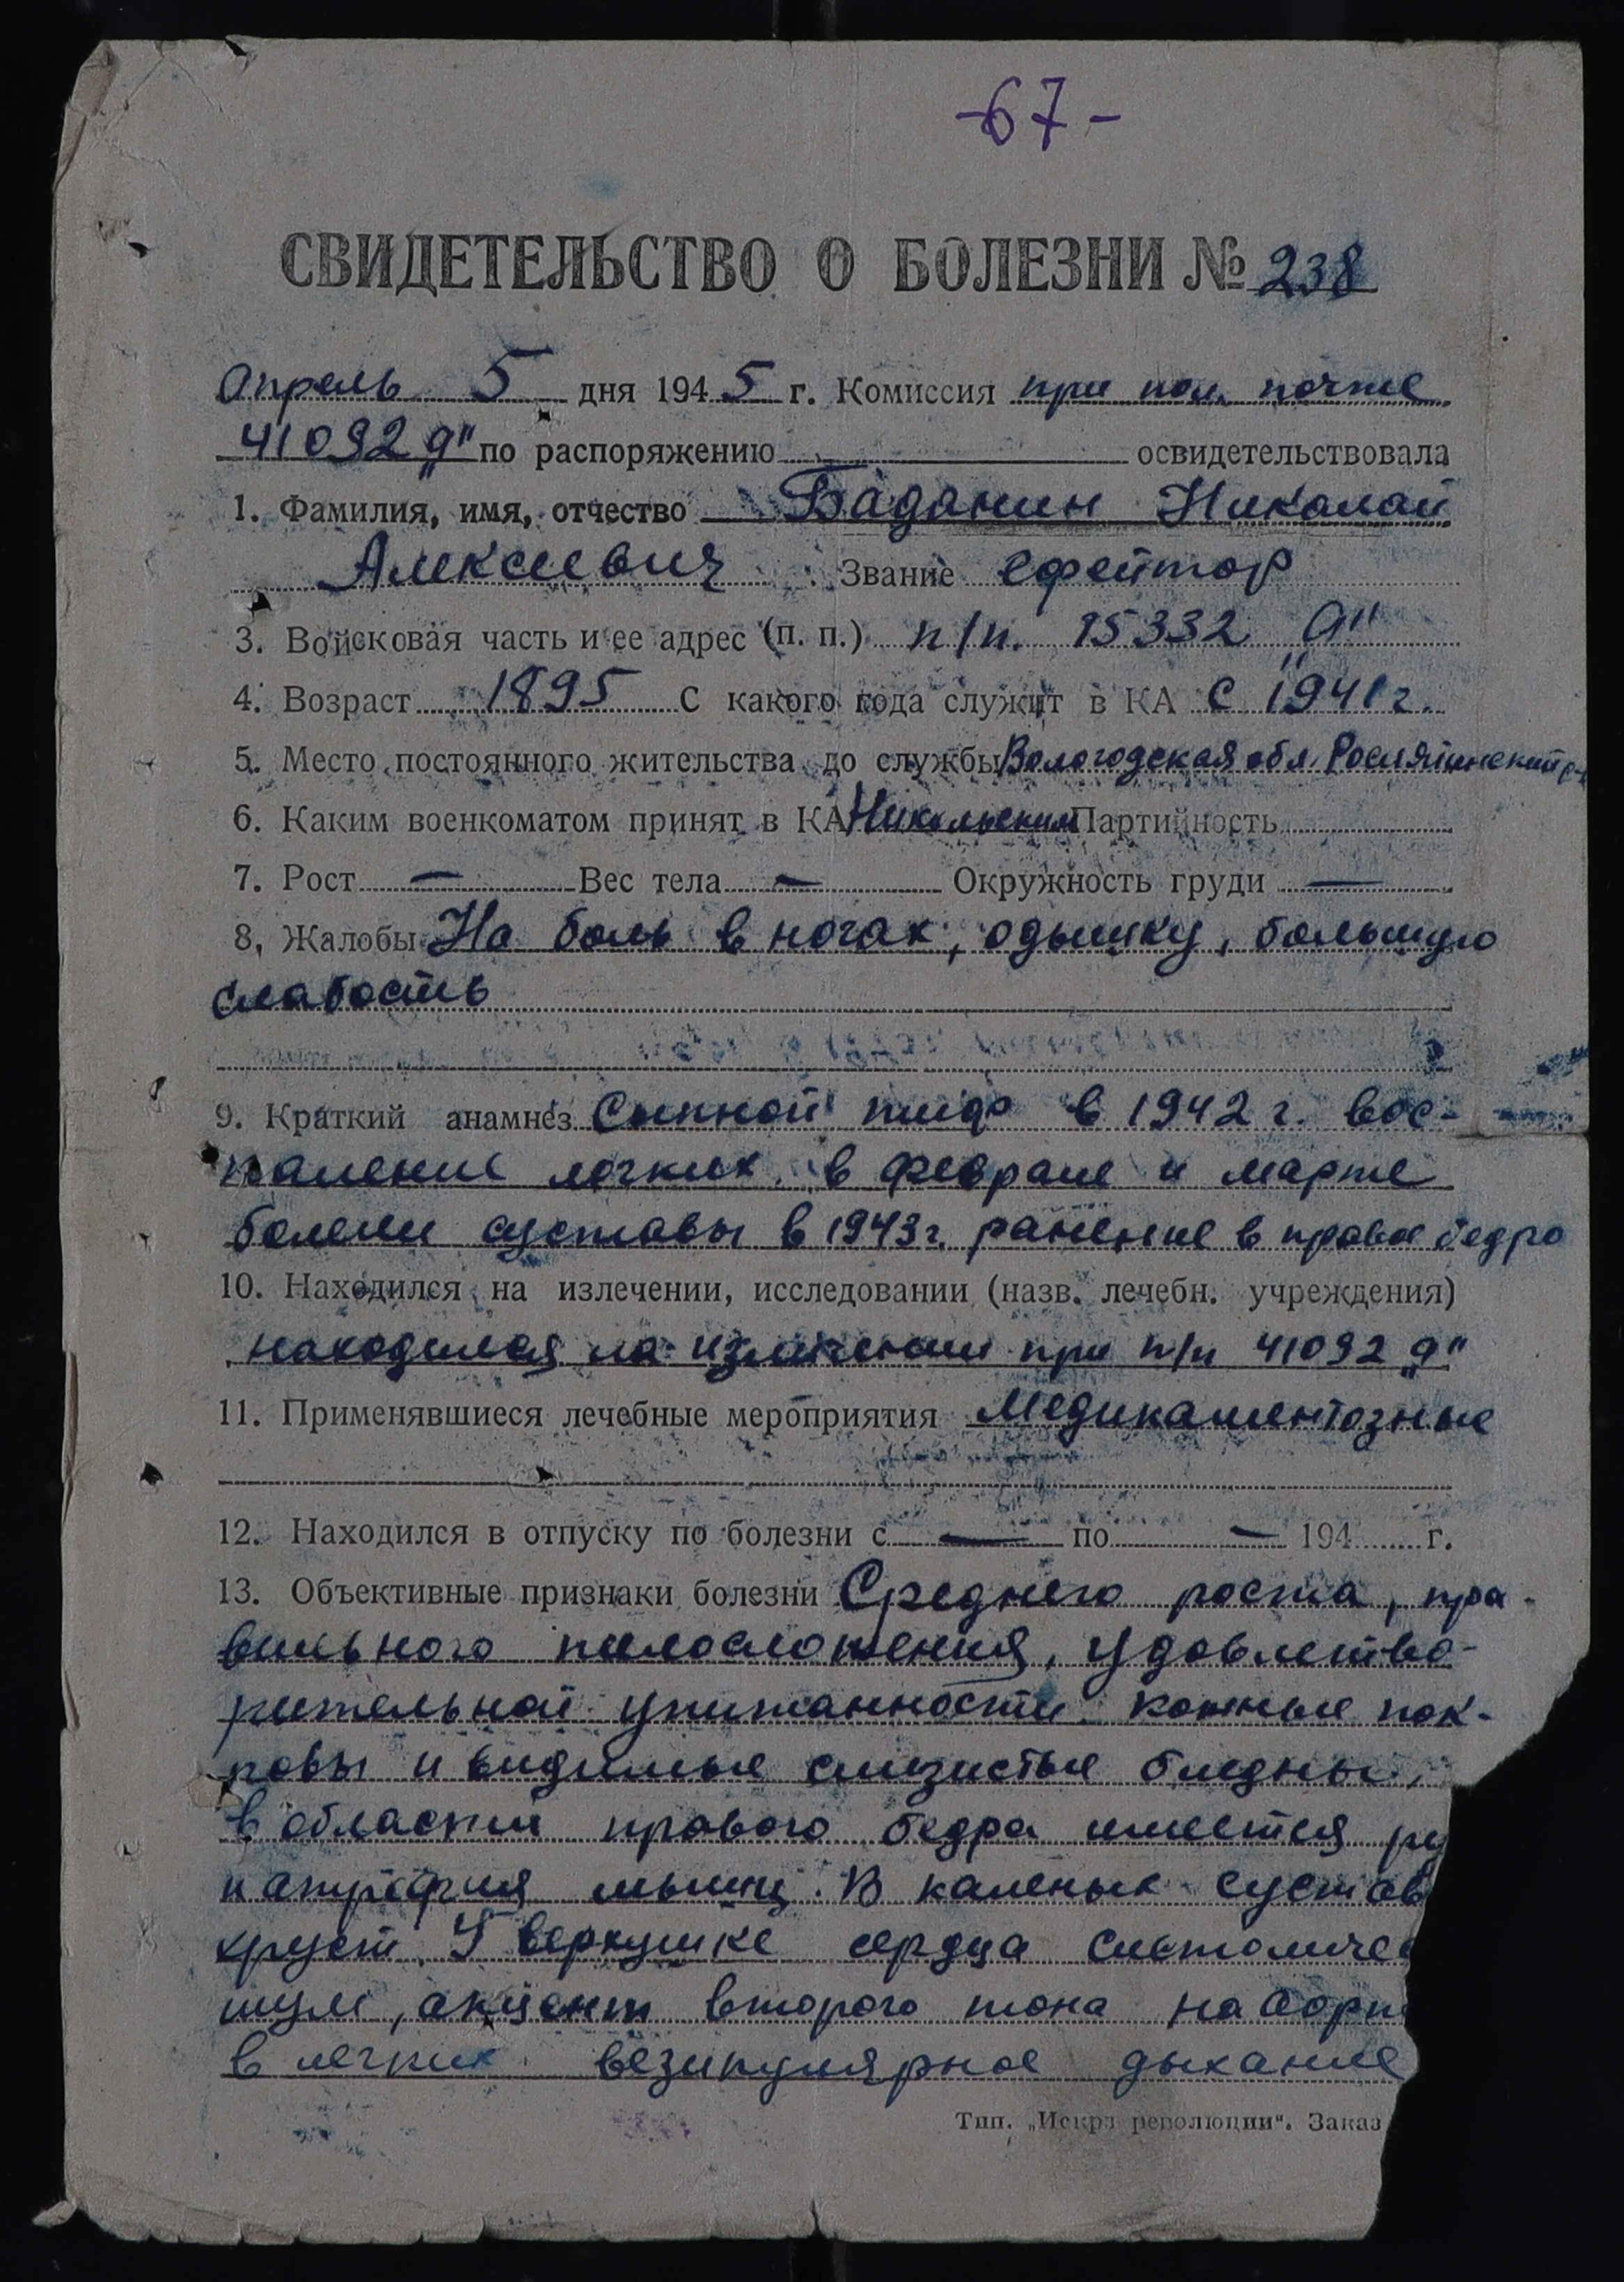 -67-
СВИДЕТЕЛЬСТВО О БОЛЕЗНИ № 238
Апрель 5 дня 1945 г. Комиссия при пол. почте
41092 „д" по распоряжению освидетельствовала
1. Фамилия, имя, отчество Баданин Николай
Алексеевич Звание ефрейтор
3. Войсковая часть и ее адрес (п. п.) п/п. 15332 „А"
4. Возраст 1895 С какого года служит в КА с 1941 г.
5. Место постоянного жительства до службы Вологодская обл. Рослятинский р-н
6. Каким военкоматом принят в КА Никольским Партийность
7. Рост — Вес тела — Окружность груди —
8, Жалобы На боль в ногах, одышку, большую
слабость
9. Краткий анамнез Сыпной тиф в 1942 г. вос-
паление легких. в феврале и марте
болели суставы в 1943 г. ранение в правое бедро
10. Находился на излечении, исследовании (назв. лечебн. учреждения)
находился на излечении при п/п 41092 „д"
11. Применявшиеся лечебные мероприятия Медикаментозные
12. Находился в отпуску по болезни с — по — 194 г.
13. Объективные признаки болезни Среднего роста, пра-
вильного телосложения, удовлетво-
рительной упитанности. кожные пок-
ровы и видимые слизистые бледны,
в области правого бедра имеется ру
и атрофия мышц. В каленых сустав
хруст. У верхушке сердца систоличес
шум, акцент второго тона на аорт
в легких везикулярное дыхание
Тип. „Искра революции". Заказ